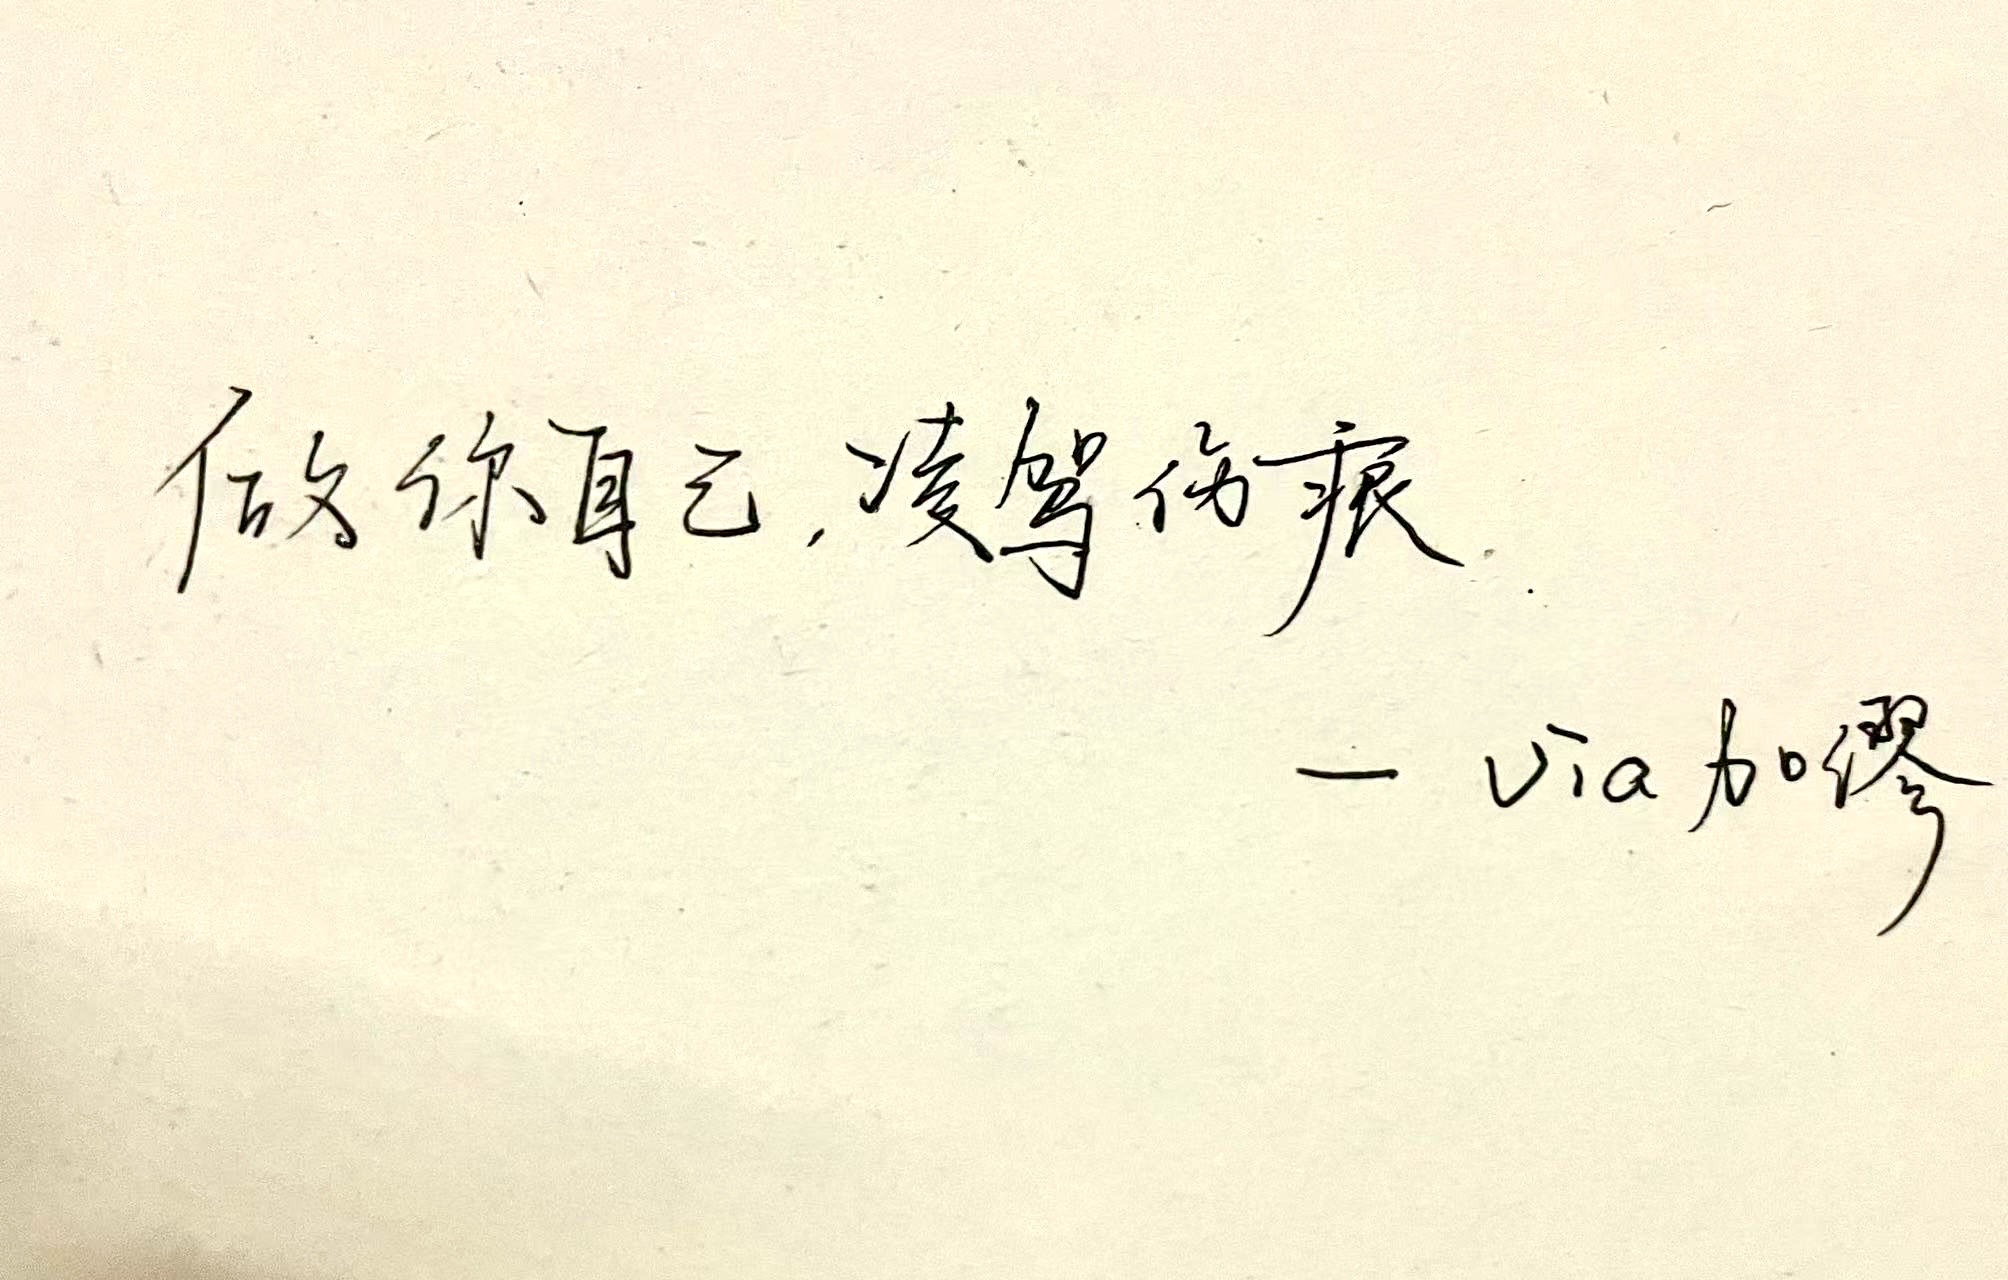 做你自己，凌驾伤痕.
— via 加缪